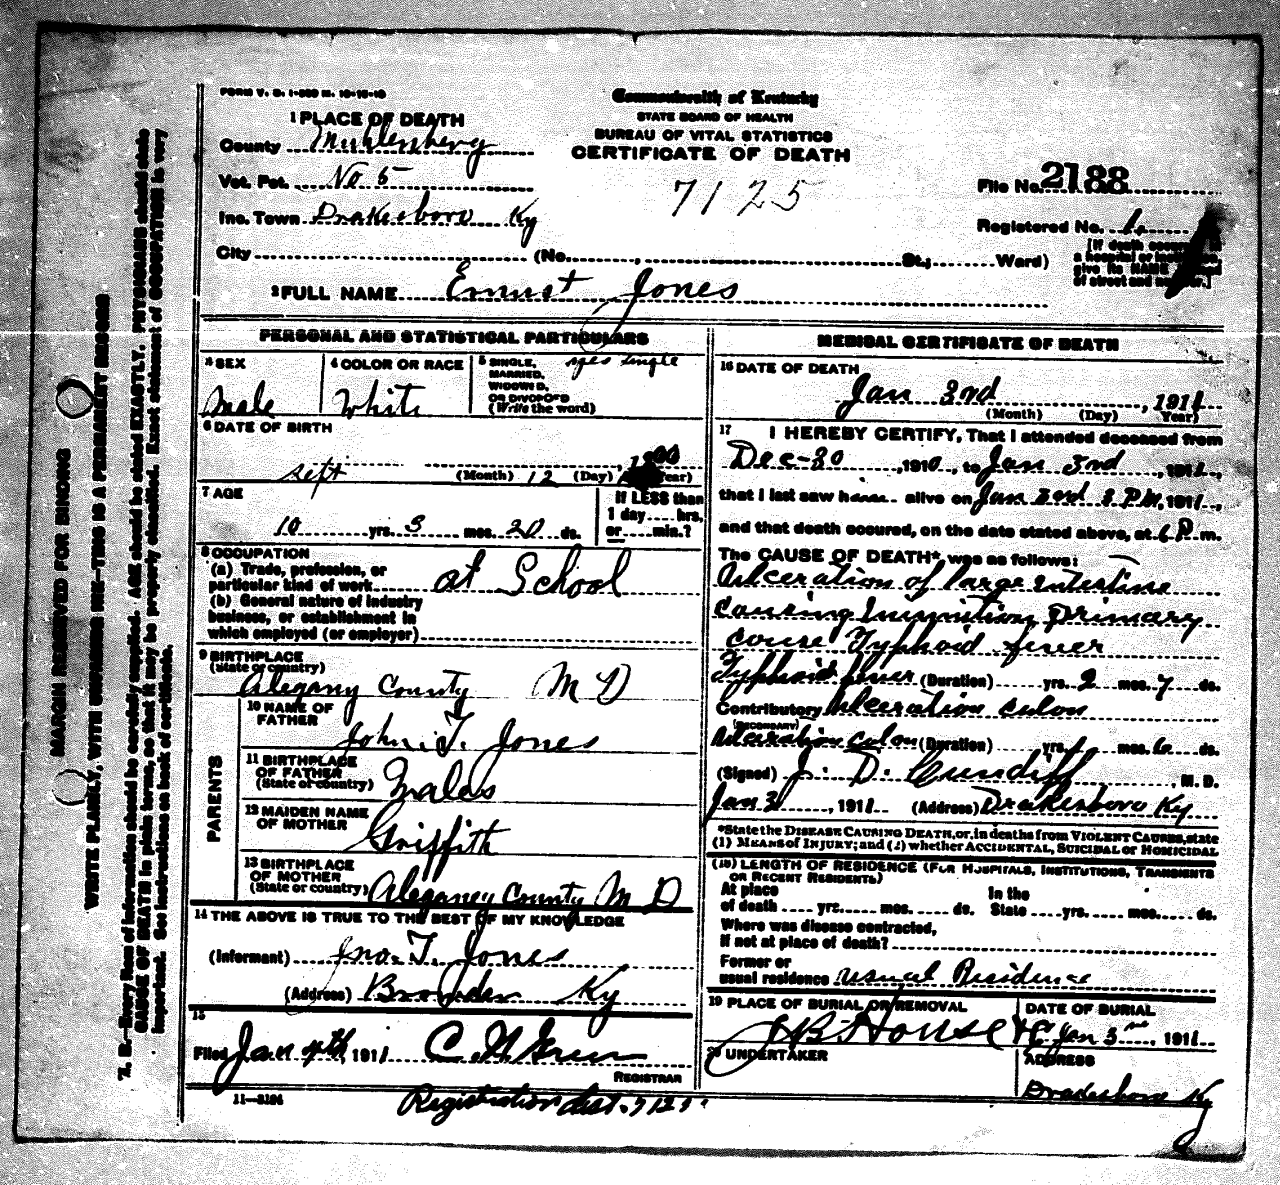 FORM V. S. 1-500 M. 10-10-10
Commonwealth of Kentucky
STATE BOARD OF HEALTH
BUREAU OF VITAL STATISTICS
CERTIFICATE OF DEATH
7125
File No. 2188
Registered No. 6
[If death occurred in
a hospital or institution,
give its NAME instead
of street and number.]
1 PLACE OF DEATH
County Muhlenberg
Vot. Pct. No 5
Inc. Town Drakesboro Ky
City (No. , St.; Ward)
2 FULL NAME Ernust Jones
PERSONAL AND STATISTICAL PARTICULARS
3 SEX
Male
4 COLOR OR RACE
White
5 SINGLE,
MARRIED,
WIDOWED,
OR DIVORCED
(Write the word)
yes single
6 DATE OF BIRTH
sept (Month) 12 (Day) , 1900 (Year)
7 AGE
10 yrs. 3 mos. 20 ds.
If LESS than
1 day hrs.
or min.?
8 OCCUPATION
(a) Trade, profession, or
particular kind of work at School
(b) General nature of industry
business, or establishment in
which employed (or employer)
9 BIRTHPLACE
(State or country)
Alegany County M D
PARENTS
10 NAME OF
FATHER
John T. Jones
11 BIRTHPLACE
OF FATHER
(State or country)
Wales
12 MAIDEN NAME
OF MOTHER
Griffith
13 BIRTHPLACE
OF MOTHER
(State or country)
Aleganey County M D
14 THE ABOVE IS TRUE TO THE BEST OF MY KNOWLEDGE
(Informant) Jno. T. Jones
(Address) Browder Ky
15
Filed Jan 4th 1911
REGISTRAR
11-3184
Registration dist. 7125
MEDICAL CERTIFICATE OF DEATH
16 DATE OF DEATH
Jan 3rd , 1911
(Month) (Day) (Year)
17 I HEREBY CERTIFY, That I attended deceased from
Dec-30 , 1910, to Jan 3rd , 1911,
that I last saw him alive on Jan 3rd 2 P M, 1911,
and that death occured, on the date stated above, at 6 P. m.
The CAUSE OF DEATH*, was as follows:
Ulceration of large intestine
causing Innanition, primary
couse Typhoid fever
Typhoid fever (Duration) yrs. 2 mos. 7 ds.
Contributory Ulceration colon
(SECONDARY)
Ulceration colon (Duration) yrs. mos. 6 ds.
(Signed) J. D. Cundiff , M. D.
Jan 3 , 1911 (Address) Drakesboro Ky
*State the DISEASE CAUSING DEATH, or, in deaths from VIOLENT CAUSES, state
(1) MEANS OF INJURY; and (2) whether ACCIDENTAL, SUICIDAL or HOMICIDAL
(18) LENGTH OF RESIDENCE (FOR HOSPITALS, INSTITUTIONS, TRANSIENTS
OR RECENT RESIDENTS)
At place
of death yrs. mos. ds.
In the
State yrs. mos. ds.
Where was disease contracted,
if not at place of death?
Former or
usual residence usual Residence
19 PLACE OF BURIAL OR REMOVAL
DATE OF BURIAL
Jan 5 , 1911
20 UNDERTAKER
ADDRESS
Drakesboro Ky
MARGIN RESERVED FOR BINDING
WRITE PLAINLY, WITH UNFADING INK—THIS IS A PERMANENT RECORD
N. B.—Every item of information should be carefully supplied. AGE should be stated EXACTLY. PHYSICIANS should state
CAUSE OF DEATH in plain terms, so that it may be properly classified. Exact statement of OCCUPATION is very
important. See instructions on back of certificate.